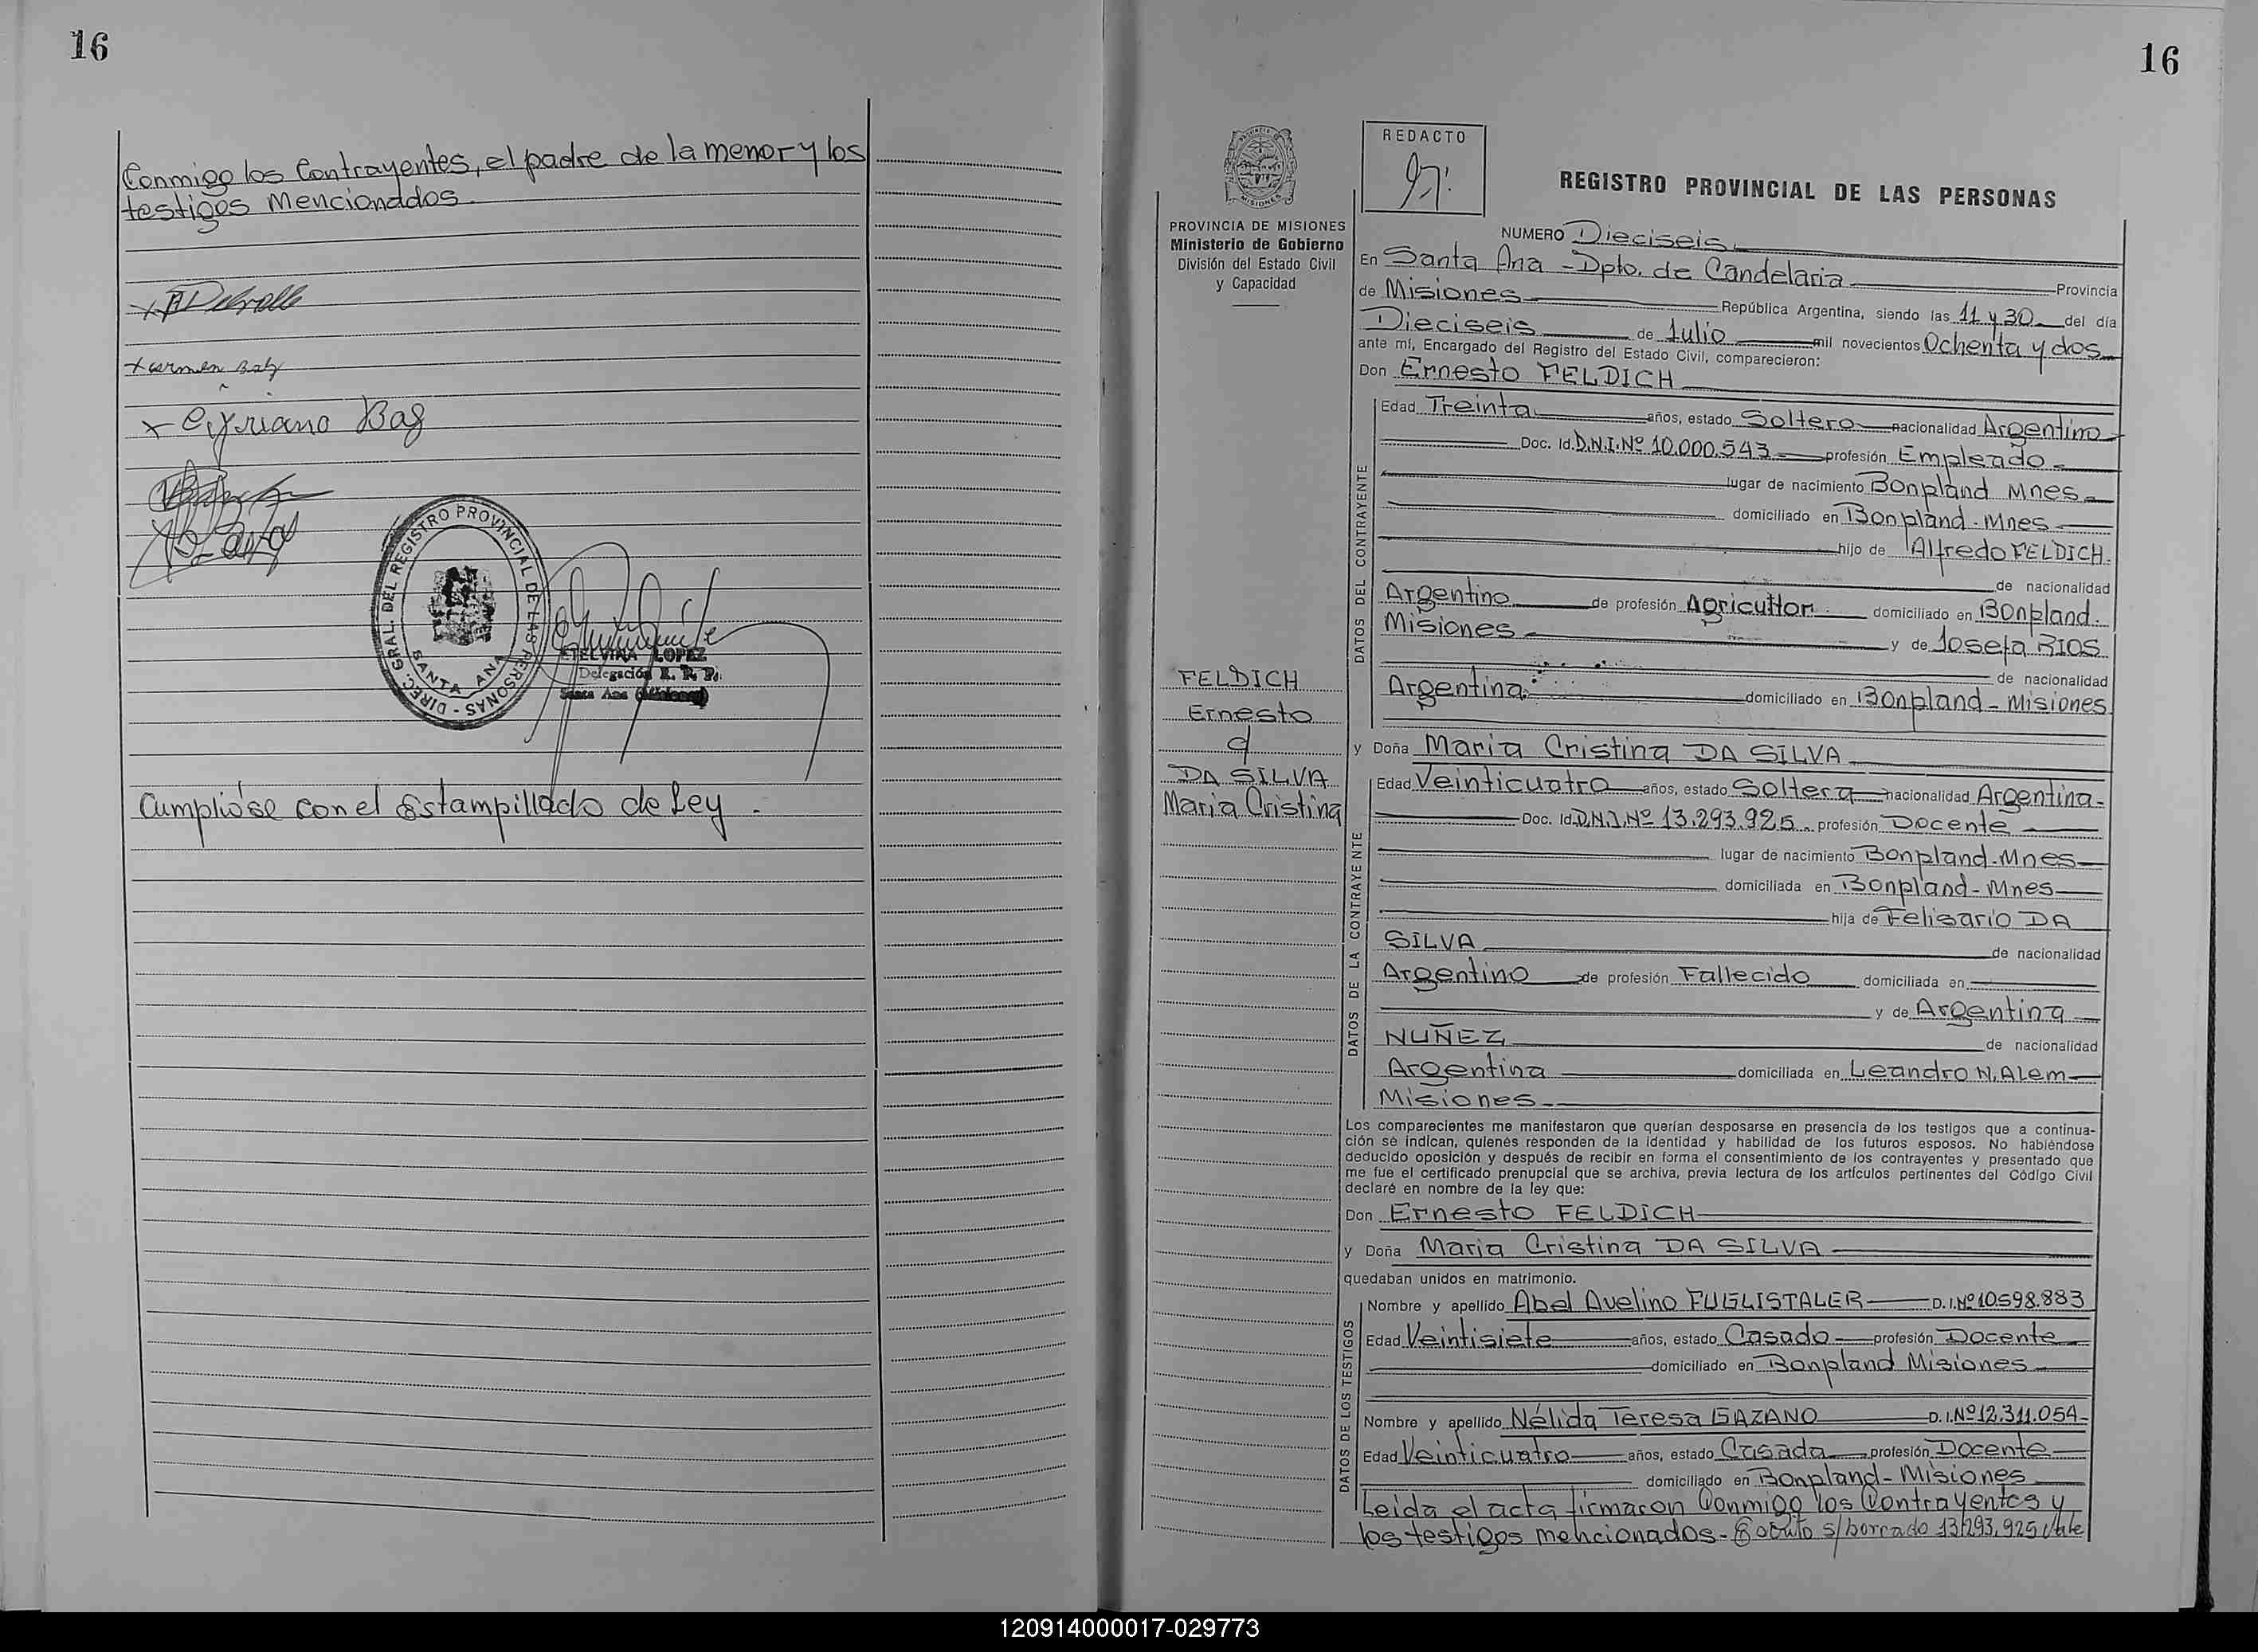 16
Conmigo los Contrayentes, el padre de la menor y los
testigos Mencionados.
Cipriano
DIREC. GRAL. DEL REGISTRO PROVINCIAL DE LAS PERSONAS -
SANTA ANA
ETELVINA LOPEZ
Delegación R. P. P.
Santa Ana (Misiones)
Cumplióse con el Estampillado de Ley -
16
REDACTO
MISIONES
REGISTRO PROVINCIAL DE LAS PERSONAS
PROVINCIA DE MISIONES
Ministerio de Gobierno
División del Estado Civil
y Capacidad
FELDICH
Ernesto
c/
DA SILVA
Maria Cristina
NUMERO Dieciseis
En Santa Ana - Dpto. de Candelaria Provincia
de Misiones República Argentina, siendo las 11 y 30 del día
Dieciseis de Julio mil novecientos Ochenta y dos
ante mí, Encargado del Registro del Estado Civil, comparecieron:
Don Ernesto FELDICH
DATOS DEL CONTRAYENTE
Edad Treinta años, estado Soltero nacionalidad Argentino
Doc. Id. D.N.I. Nº 10.000.543 profesión Empleado
lugar de nacimiento Bonpland Mnes
domiciliado en Bonpland - Mnes
hijo de Alfredo FELDICH
de nacionalidad
Argentino de profesión Agricultor domiciliado en Bonpland.
Misiones y de Josefa RIOS
de nacionalidad
Argentina domiciliado en Bonpland - Misiones
y Doña Maria Cristina DA SILVA
DATOS DE LA CONTRAYENTE
Edad Veinticuatro años, estado Soltera nacionalidad Argentina
Doc. Id. D.N.I. Nº 13.293.925 profesión Docente
lugar de nacimiento Bonpland - Mnes
domiciliada en Bonpland - Mnes
hija de Felisario DA
SILVA de nacionalidad
Argentino de profesión Fallecido domiciliada en
y de Argentina
NUÑEZ de nacionalidad
Argentina domiciliada en Leandro N. Alem
Misiones
Los comparecientes me manifestaron que querían desposarse en presencia de los testigos que a continua-
ción se indican, quienes responden de la identidad y habilidad de los futuros esposos. No habiéndose
deducido oposición y después de recibir en forma el consentimiento de los contrayentes y presentado que
me fue el certificado prenupcial que se archiva, previa lectura de los artículos pertinentes del Código Civil
declaré en nombre de la ley que:
Don Ernesto FELDICH
y Doña Maria Cristina DA SILVA
quedaban unidos en matrimonio.
DATOS DE LOS TESTIGOS
Nombre y apellido Abel Avelino FUGLISTALER D.I. Nº 10.598.883
Edad Veintisiete años, estado Casado profesión Docente
domiciliado en Bonpland Misiones
Nombre y apellido Nélida Teresa GAZANO D.I. Nº 12.311.054
Edad Veinticuatro años, estado Casada profesión Docente
domiciliado en Bonpland - Misiones
Leida el acta firmaron Conmigo los Contrayentes y
los testigos mencionados - s/borrado 13.293.925 Vale
120914000017-029773